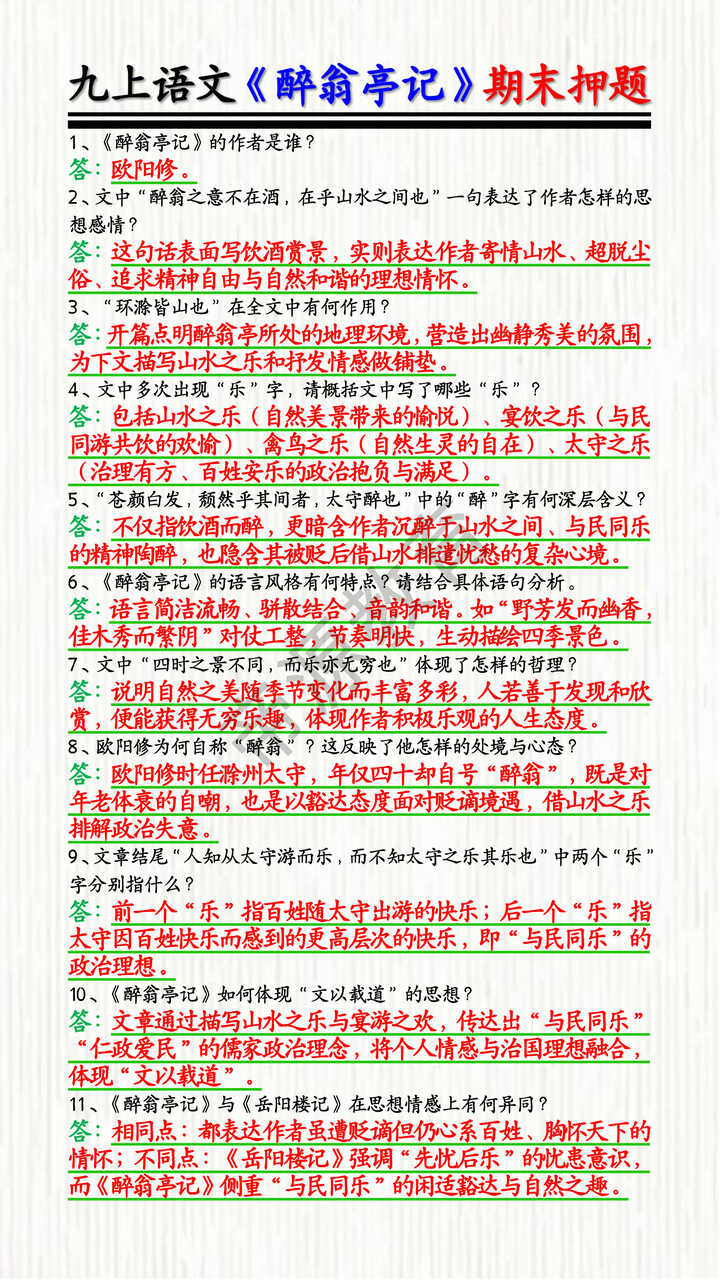 九上语文《醉翁亭记》期末押题
1、《醉翁亭记》的作者是谁？
答：欧阳修。
2、文中“醉翁之意不在酒，在乎山水之间也”一句表达了作者怎样的思
想感情？
答：这句话表面写饮酒赏景，实则表达作者寄情山水、超脱尘
俗、追求精神自由与自然和谐的理想情怀。
3、“环滁皆山也”在全文中有何作用？
答：开篇点明醉翁亭所处的地理环境，营造出幽静秀美的氛围，
为下文描写山水之乐和抒发情感做铺垫。
4、文中多次出现“乐”字，请概括文中写了哪些“乐”？
答：包括山水之乐（自然美景带来的愉悦）、宴饮之乐（与民
同游共饮的欢愉）、禽鸟之乐（自然生灵的自在）、太守之乐
（治理有方、百姓安乐的政治抱负与满足）。
5、“苍颜白发，颓然乎其间者，太守醉也”中的“醉”字有何深层含义？
答：不仅指饮酒而醉，更暗含作者沉醉于山水之间、与民同乐
的精神陶醉，也隐含其被贬后借山水排遣忧愁的复杂心境。
6、《醉翁亭记》的语言风格有何特点？请结合具体语句分析。
答：语言简洁流畅、骈散结合、音韵和谐。如“野芳发而幽香，
佳木秀而繁阴”对仗工整，节奏明快，生动描绘四季景色。
7、文中“四时之景不同，而乐亦无穷也”体现了怎样的哲理？
答：说明自然之美随季节变化而丰富多彩，人若善于发现和欣
赏，便能获得无穷乐趣，体现作者积极乐观的人生态度。
8、欧阳修为何自称“醉翁”？这反映了他怎样的处境与心态？
答：欧阳修时任滁州太守，年仅四十却自号“醉翁”，既是对
年老体衰的自嘲，也是以豁达态度面对贬谪境遇，借山水之乐
排解政治失意。
9、文章结尾“人知从太守游而乐，而不知太守之乐其乐也”中两个“乐”
字分别指什么？
答：前一个“乐”指百姓随太守出游的快乐；后一个“乐”指
太守因百姓快乐而感到的更高层次的快乐，即“与民同乐”的
政治理想。
10、《醉翁亭记》如何体现“文以载道”的思想？
答：文章通过描写山水之乐与宴游之欢，传达出“与民同乐”
“仁政爱民”的儒家政治理念，将个人情感与治国理想融合，
体现“文以载道”。
11、《醉翁亭记》与《岳阳楼记》在思想情感上有何异同？
答：相同点：都表达作者虽遭贬谪但仍心系百姓、胸怀天下的
情怀；不同点：《岳阳楼记》强调“先忧后乐”的忧患意识，
而《醉翁亭记》侧重“与民同乐”的闲适豁达与自然之趣。